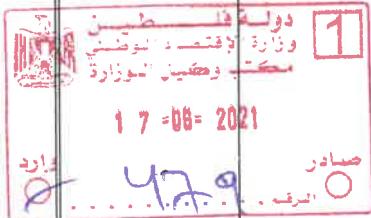 دولة فلسطين
وزارة الاقتصاد الوطني
مكتب وكيل الوزارة
1
17 -06- 2021
صادر
وارد
الرقم 479